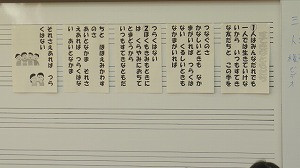 1人はみんなだれでも
一人では生きていけな
いから いつもすてき
な友だちと この手を
つなぐのさ
かなしいときも なか
まがいれば つらくは
なかまがいれば
つらくはない
2ぼくもきみもときに
は くらやみにおちて
とまどうから
いつもすてきなともだ
ちと ほほえみかわす
のさ
あいとなかま それさ
えあれば つらくはな
い あいとなかま
それさえあれば つら
くはない